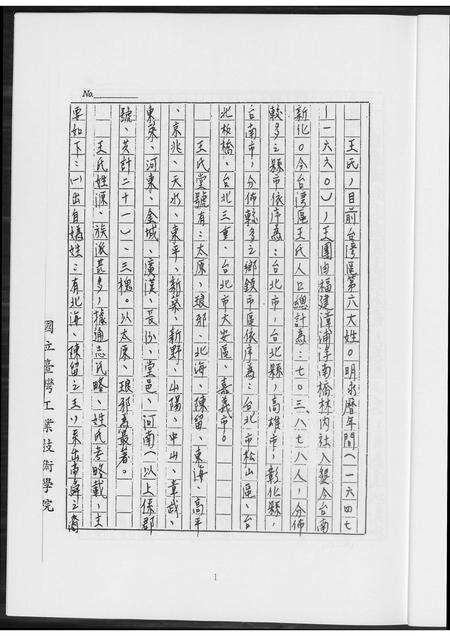 No.
王氏,目前台灣區第六大姓。明永曆年間(一六四七
—一六六〇),王團由福建漳浦浮南橋林內社入墾今台南
新化。今台灣區王氏人口總計為:七〇三八七八人,分佈
較多之縣市依序為:台北市,台北縣,高雄市,彰化縣,
台南市,分佈較多之鄉鎮市區依序為:台北市松山區、台
北板橋、台北三重、台北市大安區、嘉義市。
王氏堂號有:太原、琅邪、北海、陳留、東海、高平
、京兆、天水、東平、新蔡、新野、山陽、中山、章武、
東萊、河東、金城、廣漢、長沙、堂邑、河南(以上係郡
號、共計二十一)、三槐。以太原、琅邪為最著。
王氏姓源、族派甚多,據通志氏略、姓氏考略載,主
要如下:㈠出自媯姓:有北海、陳留之王,系出帝舜之裔
國立臺灣工業技術學院
1